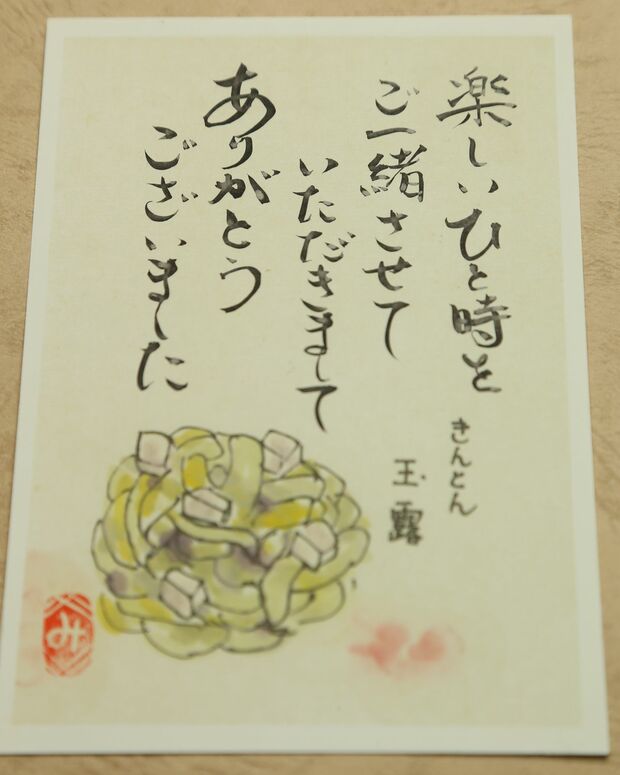 楽しいひと時を
ご一緒させて
いただきまして
ありがとう
ございました
きんとん
玉露
み